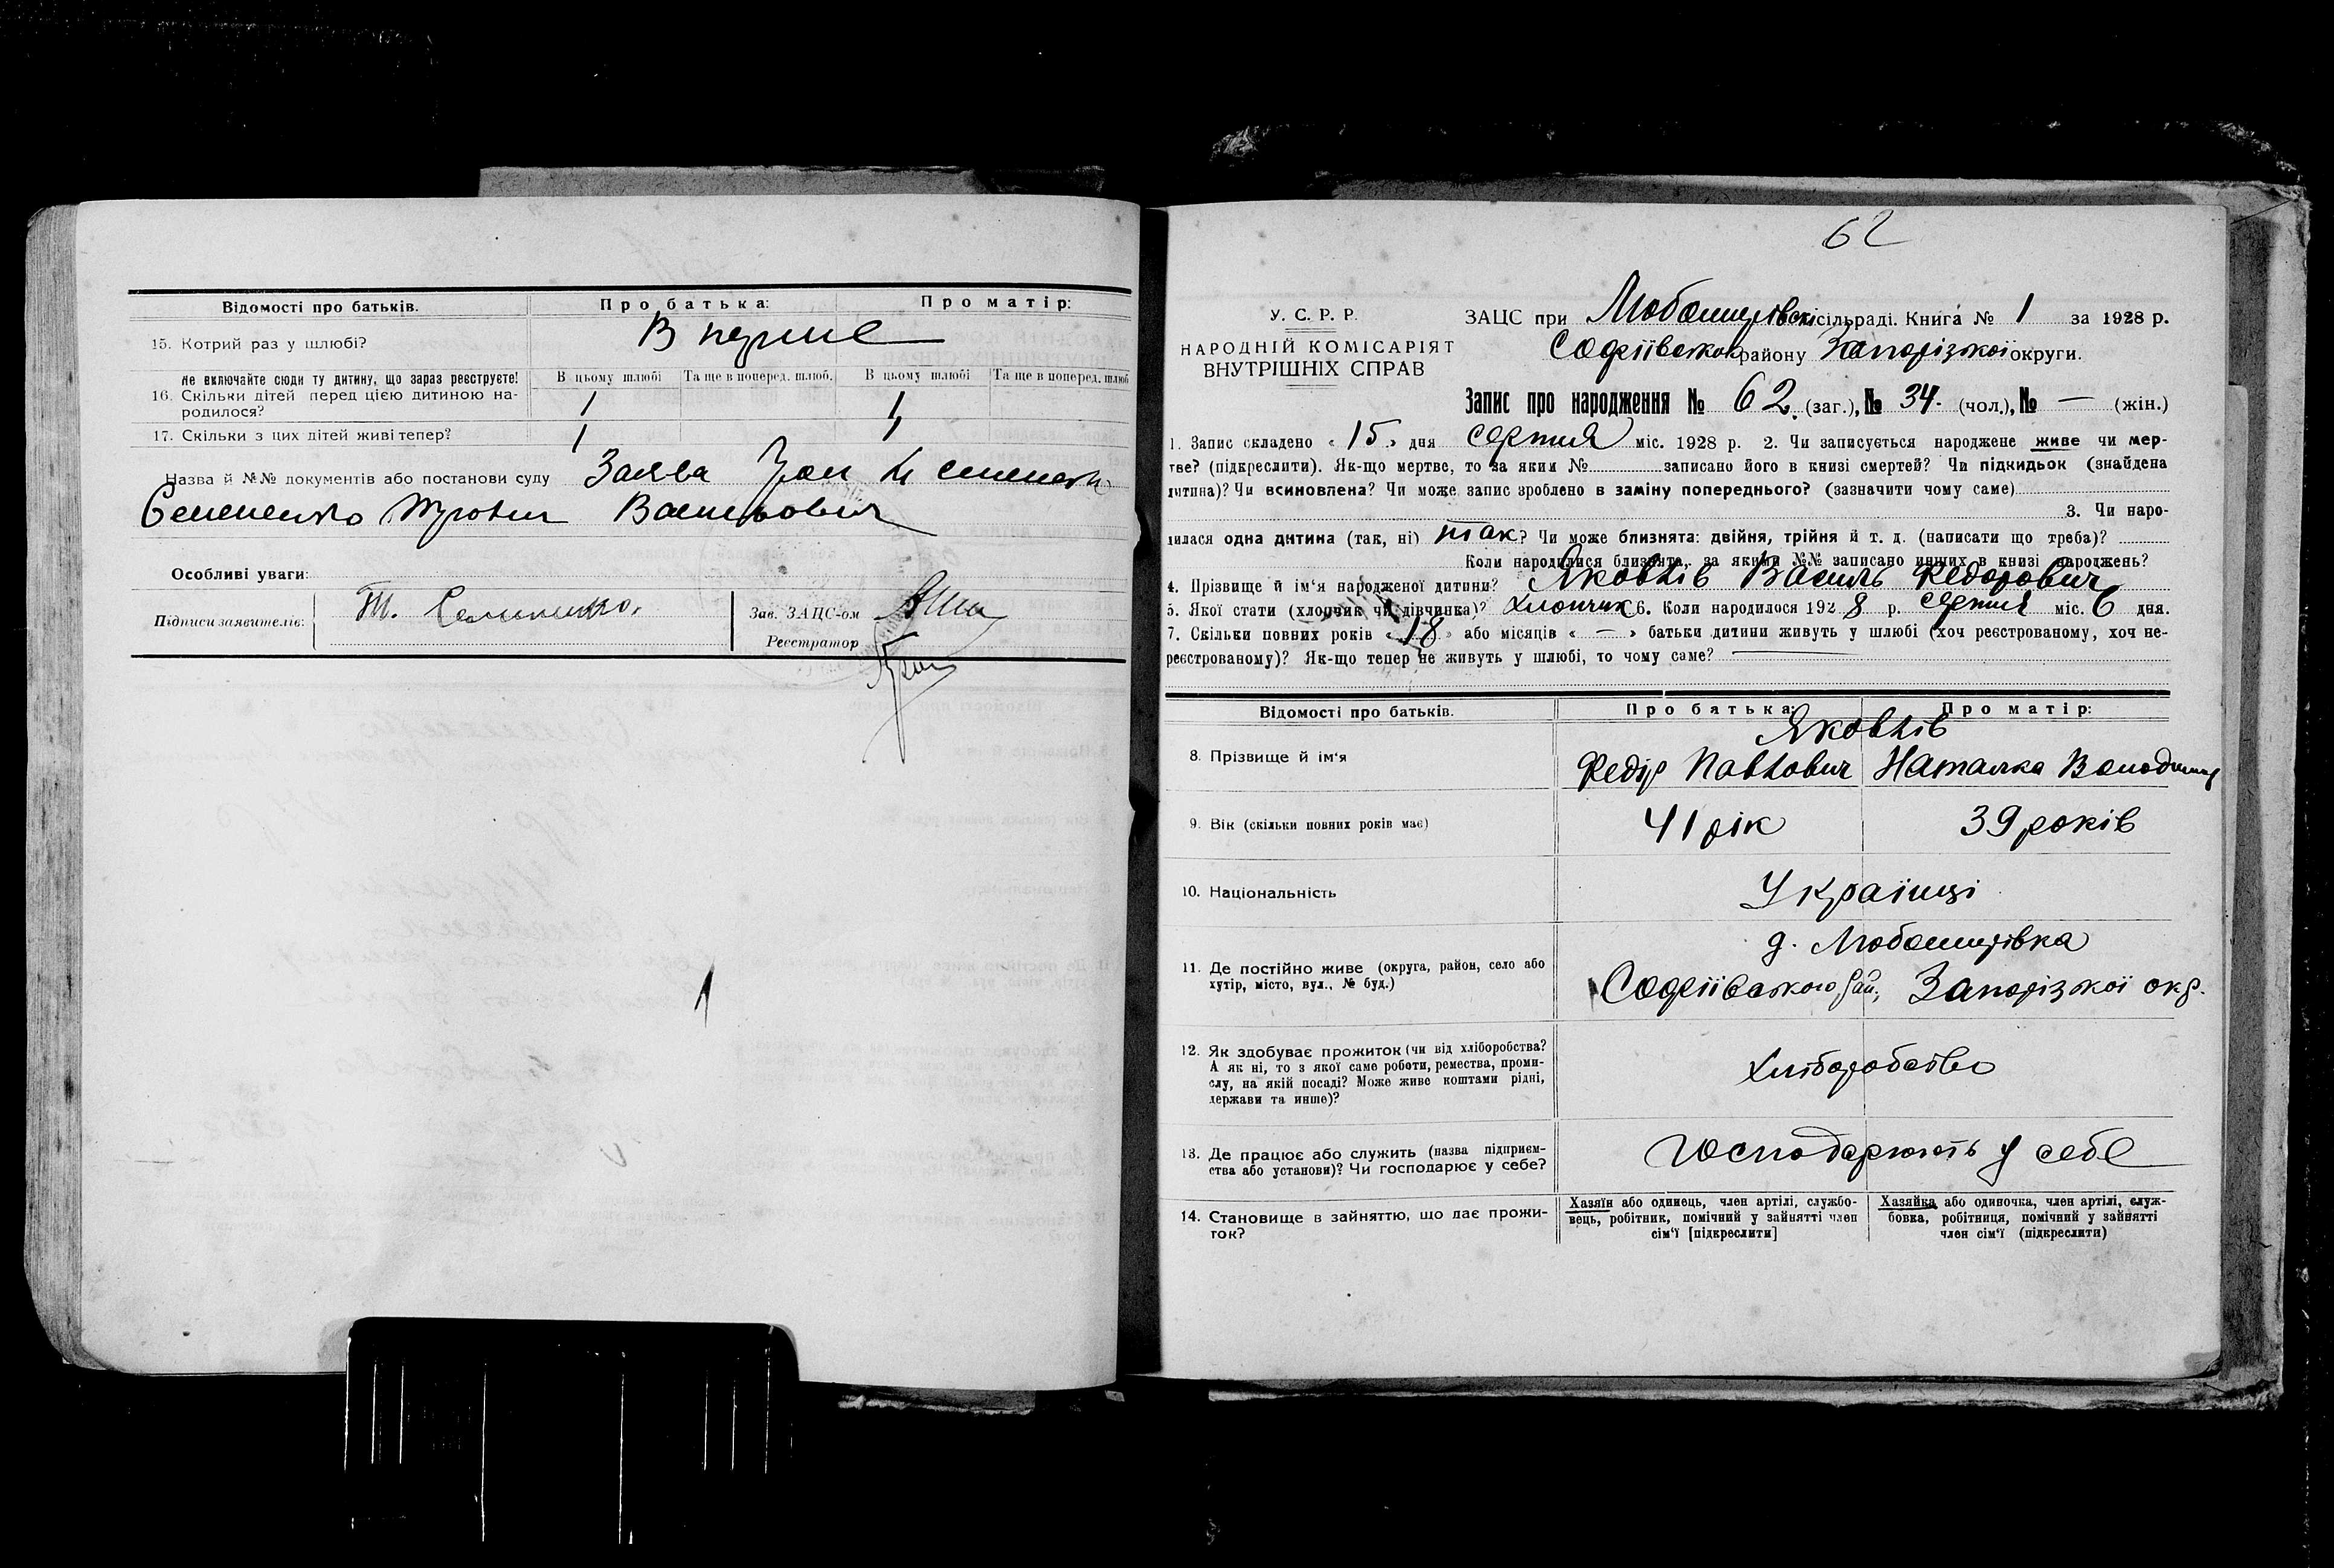 Відомості про батьків. Про батька: Про матір:
15. Котрий раз у шлюбі? Вперше
не включайте сюди ту дитину, що зараз реєструєте! В цьому шлюбі Та ще в поперед. шлюб. В цьому шлюбі Та ще в поперед. шлюб
16. Скільки дітей перед цією дитиною на-
родилося? 1 1
17. Скільки з цих дітей живі тепер? 1 1
Назва й №№ документів або постанови суду Заява
Семененко Василькович
Особливі уваги:
Підписи заявителів: Т. Семененко. Зав. ЗАЦС-ом
Реєстратор
1
62
У. С. Р. Р.
НАРОДНІЙ КОМІСАРІЯТ
ВНУТРІШНІХ СПРАВ
ЗАЦС при Любаширівській сільраді. Книга № 1 за 1928 р.
Софіївського району Запорізької округи.
Запис про народження № 62. (заг.), № 34. (чол.), № — (жін.)
1. Запис складено « 15 » дня серпня міс. 1928 р. 2. Чи записується народжене живе чи мер-
тве? (підкреслити). Як-що мертве, то за яким № записано його в книзі смертей? Чи підкидьок (знайдена
дитина)? Чи всиновлена? Чи може запис зроблено в заміну попереднього? (зазначити чому саме)
3. Чи наро-
дилася одна дитина (так, ні) так? Чи може близнята: двійня, трійня й т. д. (написати що треба)?
Коли народилися близнята, за якими №№ записано инших в книзі народжень?
4. Прізвище й ім'я народженої дитини? Яковлів Василь Федорович
5. Якої стати (хлопчик чи дівчинка)? хлопчик 6. Коли народилося 1928 р. серпня міс. 6 дня.
7. Скільки повних років « 18 » або місяців « — » батьки дитини живуть у шлюбі (хоч реєстрованому, хоч не-
реєстрованому)? Як-що тепер не живуть у шлюбі, то чому саме? —
Відомості про батьків. Про батька: Про матір:
Яковлів
8. Прізвище й ім'я Федір Павлович Наталка Володимир
9. Вік (скільки повних років має) 41 рік 39 років
10. Національність Українці
д. Любаширівка
11. Де постійно живе (округа, район, село або
хутір, місто, вул., № буд.) Софіївського рай., Запорізької окр.
12. Як здобуває прожиток (чи від хліборобства?
А як ні, то з якої саме роботи, ремества, проми-
слу, на якій посаді? Може живе коштами рідні,
держави та инше)? Хліборобство
13. Де працює або служить (назва підприєм-
ства або установи)? Чи господарює у себе? Господарюють у себе
14. Становище в зайняттю, що дає прожи-
ток?
Хазяїн або одинець, член артілі, службо-
вець, робітник, помічний у зайнятті член
сім'ї [підкреслити]
Хазяйка або одиночка, член артілі, служ-
бовка, робітниця, помічний у зайнятті
член сім'ї (підкреслити)